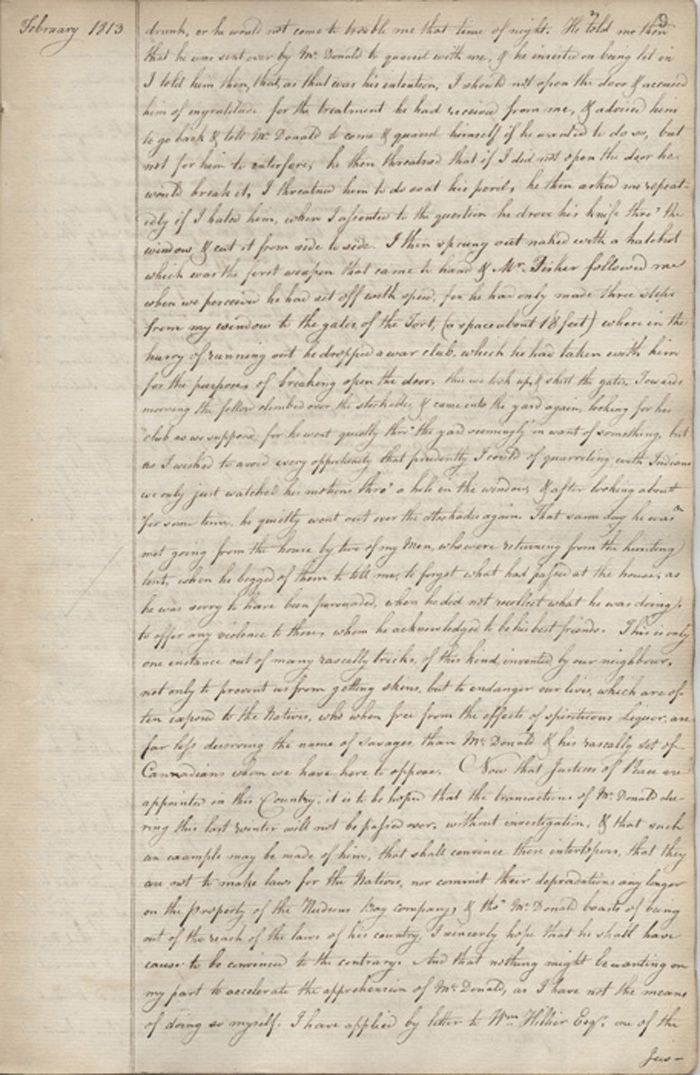 February 1813
9
drunk, or he would not come to trouble me that time of night. He told me then
that he was sent over by Mr. Donald to quarrel with me, & he insisted on being let in
I told him then, that, as that was his intention, I should not open the door & accused
him of ingratitude for the treatment he had received from me, & advised him
to go back & tell Mc. Donald to come & quarrel himself if he wanted to do so, but
not for him to interfere, he then threatned that if I did not open the door he
would break it, I threatned him to do so at his peril, he then asked me repeat-
edly if I hated him, when I assented to the question he drove his knife thro' the
window & cut it from side to side. I then sprung out naked with a hatchet
which was the first weapon that came to hand & Mr. Fisher followed me
when we perceived he had set off with speed, for he had only made three steps
from my window to the gates of the Fort, (a space about 18 feet) where in the
hurry of running out he dropped a war club, which he had taken with him
for the purpose of breaking open the door. this we took up, & shut the gates. Towards
morning the fellow climbed over the stockades, & came into the yard again, looking for his
club as we suppose, for he went quietly thro' the yard seemingly in want of something, but
as I wished to avoid every opportunity that prudently I could of quarreling with Indians
we only just watched his motions thro' a hole in the window, & after looking about
for some time, he quietly went out over the stockades again. That same day he was
met going from the house by two of my Men, who were returning from the hunting
tent, when he begged of them to tell me, to forget what had passed at the house, as
he was sorry to have been persuaded, when he did not recollect what he was doing,
to offer any violence to those, whom he acknowledged to be his best friends. This is only
one instance out of many rascally tricks, of this kind, invented by our neighbour,
not only to prevent us from getting skins, but to endanger our lives, which are of-
ten exposed to the Natives, who when free from the effects of spirituous Liquor, are
far less deserving the name of savages than Mc. Donald & his rascally set of
Cannadians whom we have here to oppose. Now that Justices of Peace are
appointed in this Country, it is to be hoped that the transactions of Mc. Donald du-
ring this last winter will not be passed over, without investigation, & that such
an example may be made of him, that shall convince these interlopers, that they
are not to make laws for the Natives, nor commit their depredations any longer
on the property of the Hudsons Bay company, & tho' Mc. Donald boasts of being
out of the reach of the laws of his country, I sincerely hope that he shall have
cause to be convinced to the contrary. And that nothing might be wanting on
my part to accelerate the apprehension of Mc. Donald, as I have not the means
of doing so myself. I have applied by letter to Wm. Hillier Esqr. one of the
Jus-